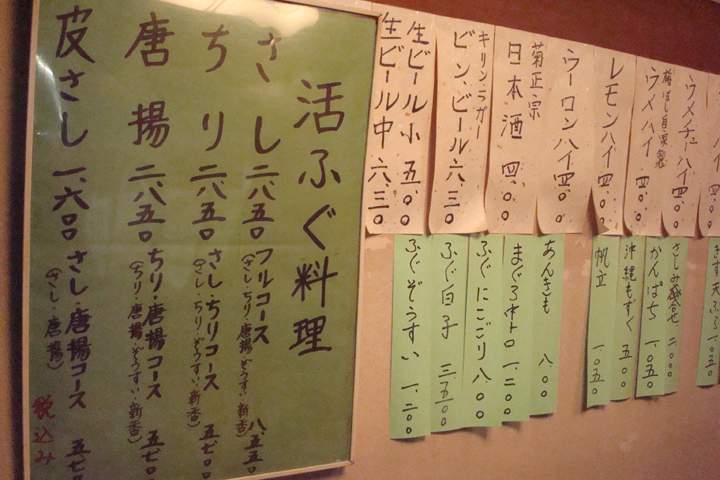 活ふぐ料理
さし 二、八五〇
ちり 二、八五〇
唐揚 二、八五〇
皮さし 一、六〇〇
フルコース 八、五五〇
(さし・ちり・唐揚・ぞうすい・新香)
さし・ちりコース 五、七〇〇
(さし・ちり・ぞうすい・新香)
ちり・唐揚コース 五、七〇〇
(ちり・唐揚・ぞうすい・新香)
さし・唐揚コース 五、七〇
(さし・唐揚)
税込み
ウメチューハイ 四、〇
梅ぼし自家製
ウメハイ 四、〇
レモンハイ 四、〇
ウーロンハイ 四、〇
菊正宗
日本酒 四、〇〇
キリン・ラガー
ビン・ビール 六、三〇
生ビール小 五、〇〇
生ビール中 六、三〇
きす天ぷら 一、〇五〇
さしみ盛合せ 二、〇〇〇
かんぱち 一、〇五〇
沖縄もずく 五、〇
帆立 一、〇五〇
あんきも 八、〇〇
まぐろ中トロ 一、二〇〇
ふぐにこごり 八、〇〇
ふぐ白子 三、五五〇
ふぐぞうすい 一、二〇〇